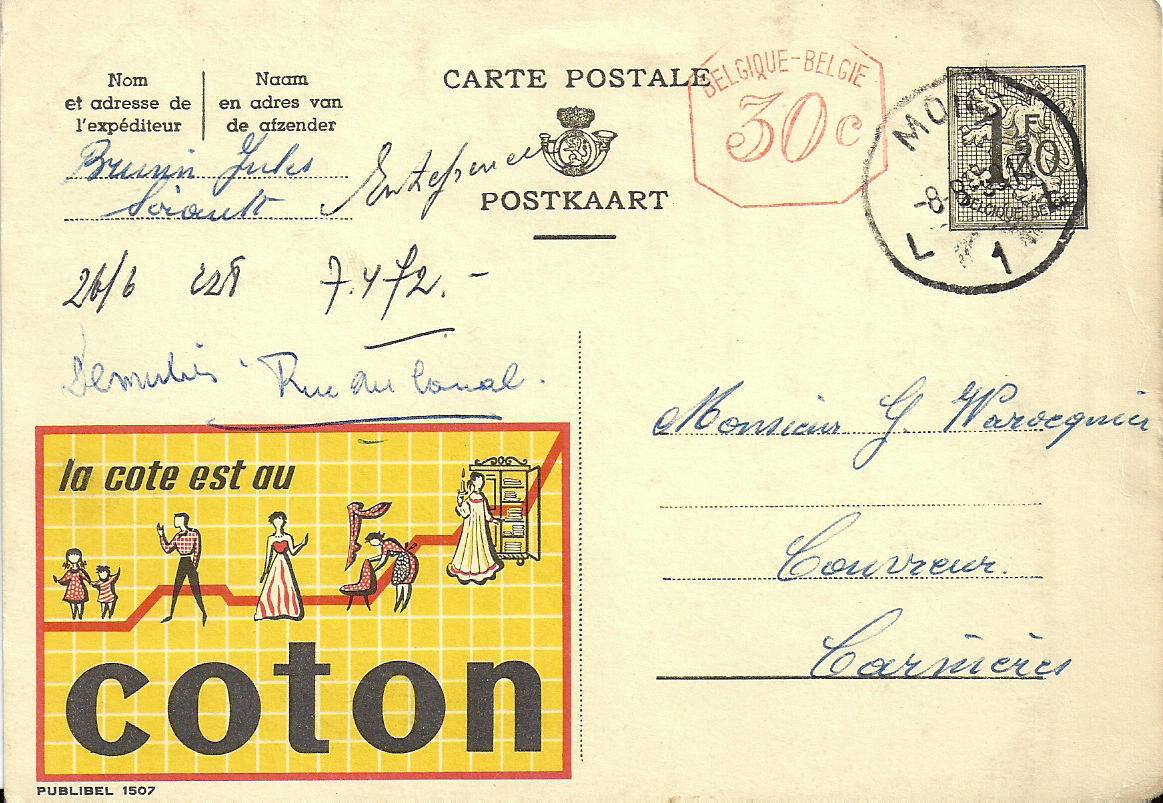 Nom
et adresse de
l'expéditeur
Naam
en adres van
de afzender
CARTE POSTALE
POSTKAART
BELGIQUE-BELGIE
30c
1F
20
BELGIQUE-BELGIE
-8-8
L 1 L
Brunin Jules
Sirault
26/6 128 7.472.-
Rue du Canal.
Monsieur G. Warocquier
Couvreur.
Carnières
la cote est au
coton
PUBLIBEL 1507